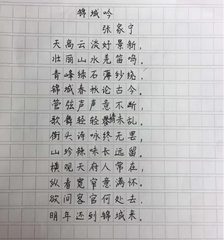 锦城吟
张家宁
天高云淡好景新，
壮丽山水羌笛鸣，
青峰绿石薄纱绕，
锦城春秋论古今，
管弦声声意不断，
歌舞轻轻未乱，
街头诗咏终无罢，
山珍辣味长远留，
横观天府人常在，
纵看宽窄意满怀，
欲问客官何处去，
明年还到锦城来，